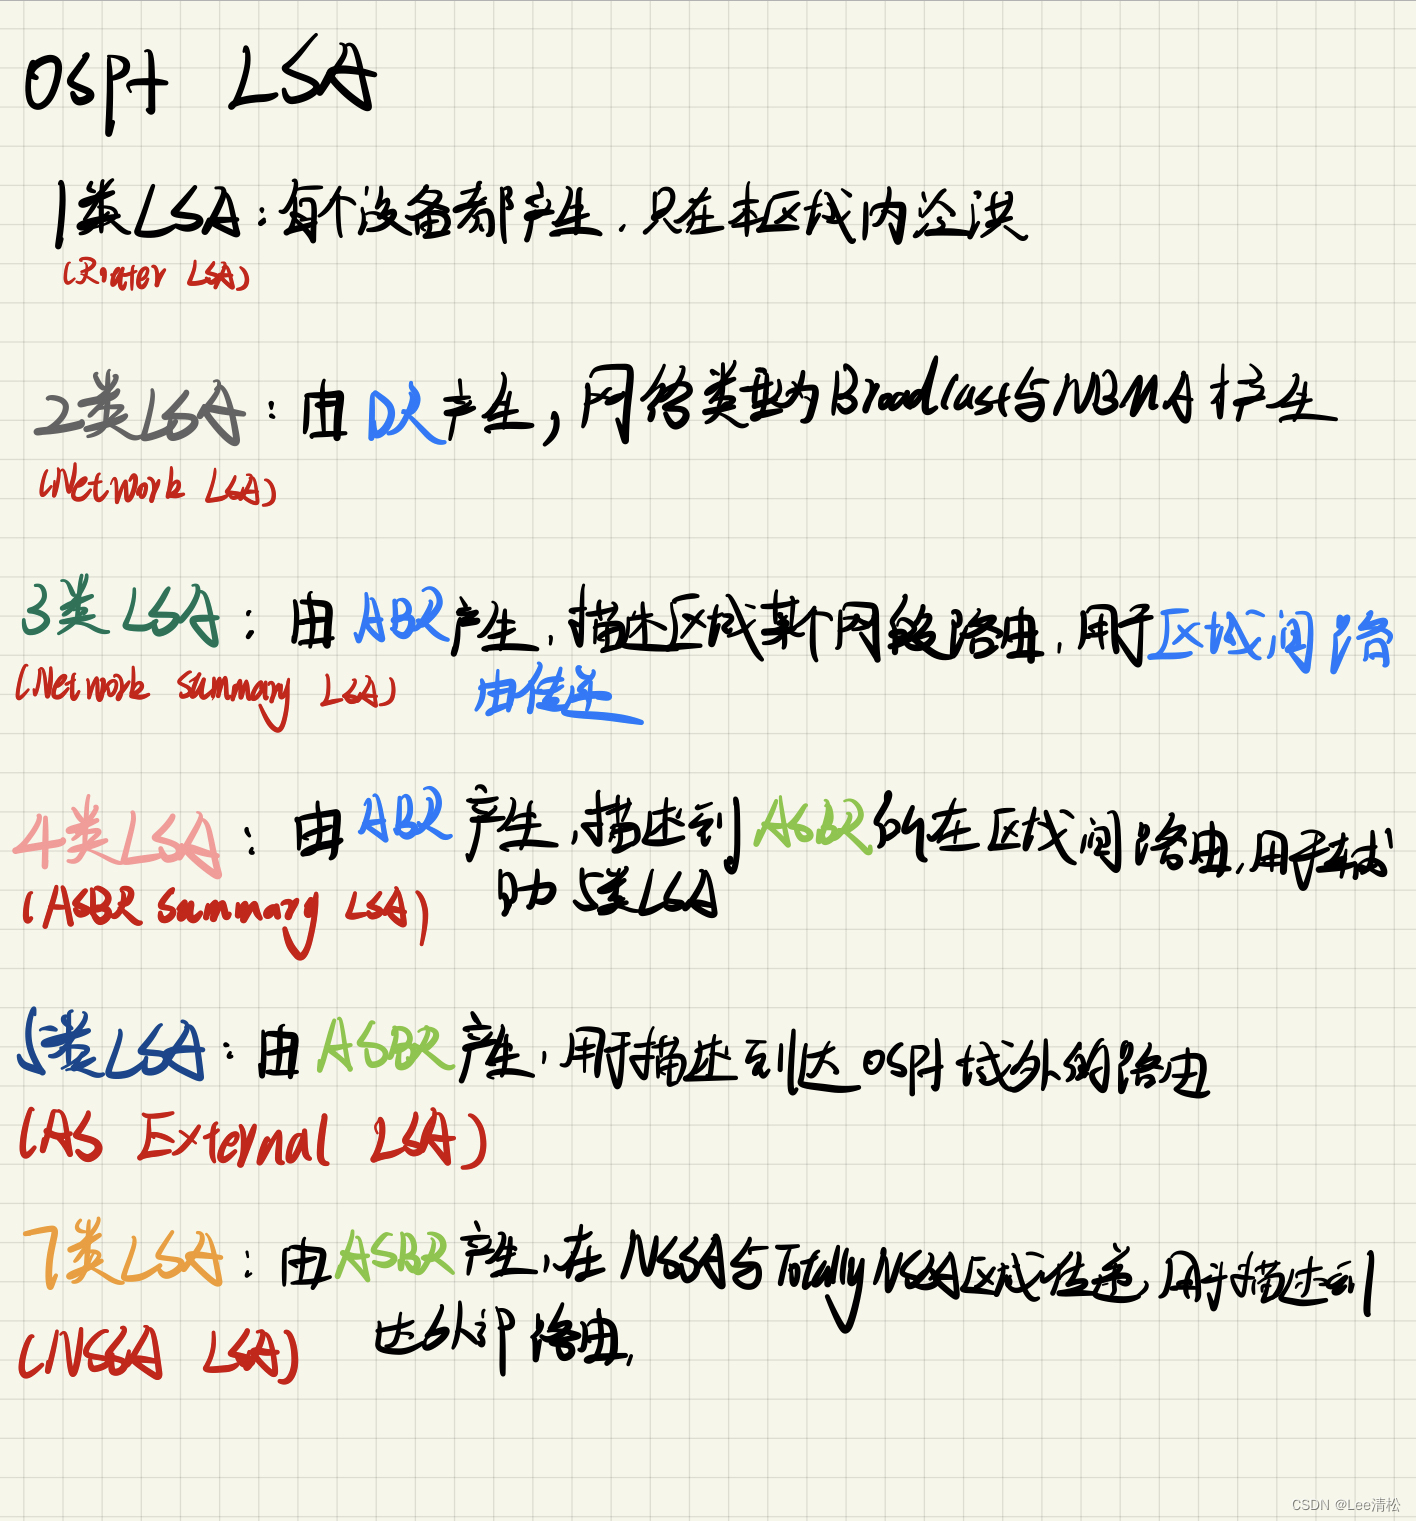 ospf LSA
1类LSA：每个设备都产生，只在本区域内泛洪
(Router LSA)
2类LSA：由DR产生，网络类型为Broadcast与NBMA才产生
(Network LSA)
3类LSA：由ABR产生，描述区域某个网段路由，用于区域间路
(Network summary LSA) 由传递
4类LSA：由ABR产生，描述到ASBR所在区域间路由，用于辅
(ASBR summary LSA) 助5类LSA
5类LSA：由ASBR产生，用于描述到达ospf域外的路由
(AS External LSA)
7类LSA：由ASBR产生，在NSSA与Totally NSSA区域传递，用于描述到
(NSSA LSA) 达外部路由。
CSDN @Lee清松